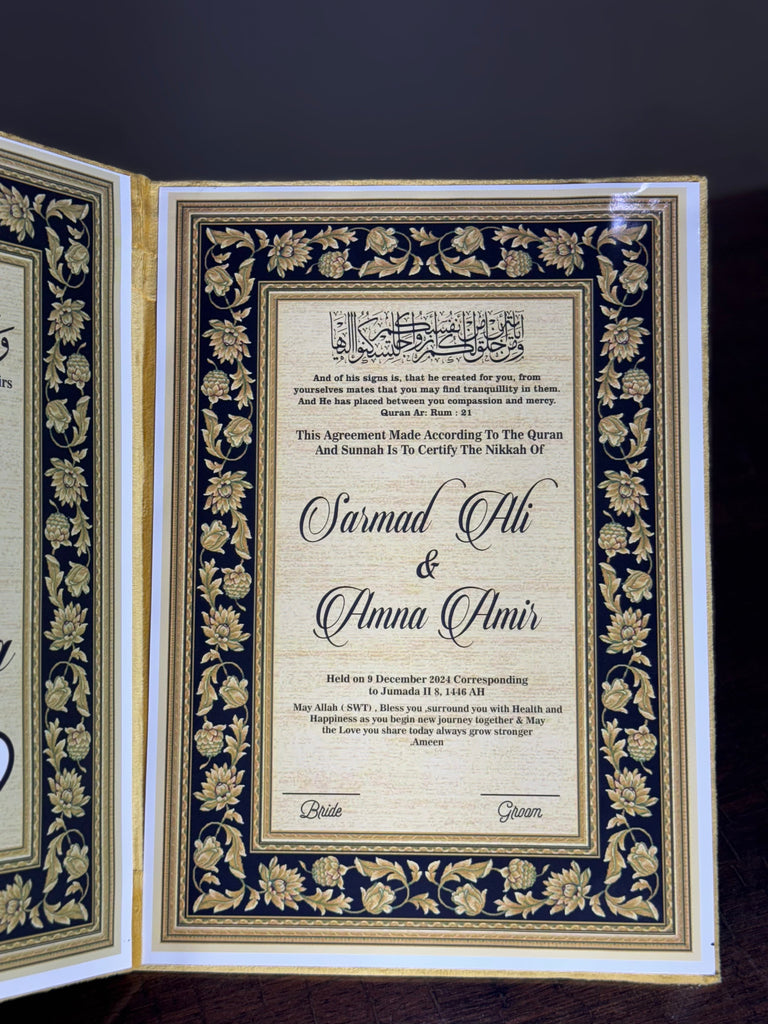 irs
ومن آياته أن خلق لكم من أنفسكم أزواجا لتسكنوا إليها
And of his signs is, that he created for you, from
yourselves mates that you may find tranquillity in them.
And He has placed between you compassion and mercy.
Quran Ar: Rum : 21
This Agreement Made According To The Quran
And Sunnah Is To Certify The Nikkah Of
Sarmad Ali
&
Amna Amir
Held on 9 December 2024 Corresponding
to Jumada II 8, 1446 AH
May Allah ( SWT) , Bless you ,surround you with Health and
Happiness as you begin new journey together & May
the Love you share today always grow stronger
.Ameen
Bride
Groom